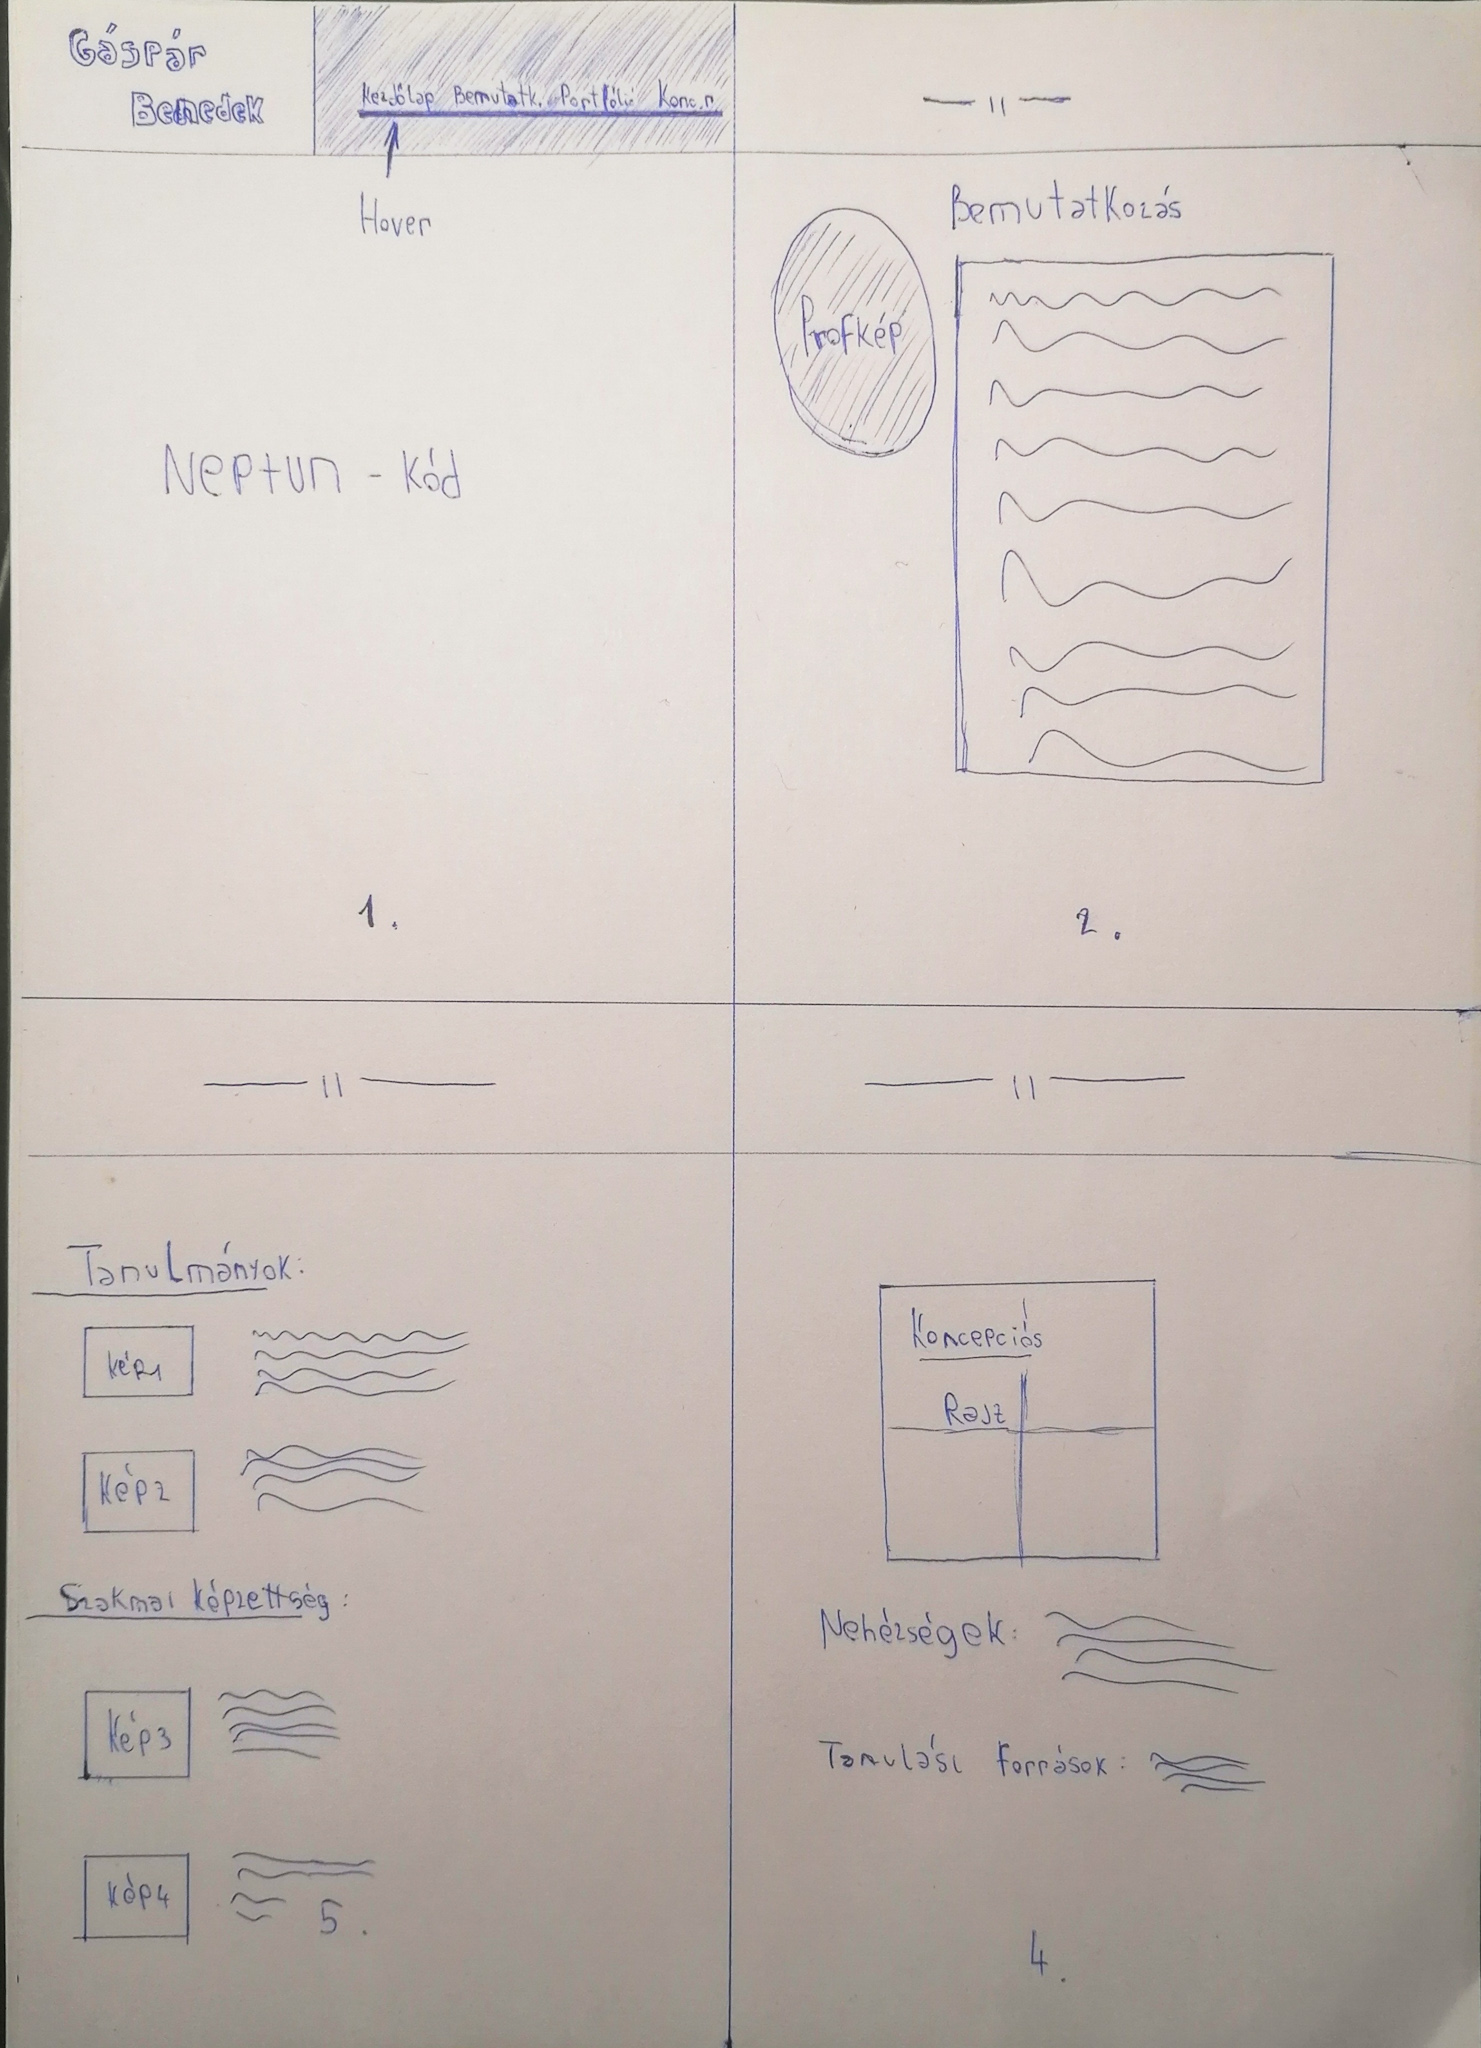 Gáspár
Benedek
Kezdőlap Bemutatk. Portfólió Konc.r.
Hover
Neptun - kód
1.
— 11 —
Bemutatkozás
Profkép
2.
— 11 —
Tanulmányok:
Kép1
Kép2
Szakmai képzettség:
Kép3
Kép4
5.
— 11 —
Koncepciós
Rajz
Nehézségek:
Tanulási források:
4.